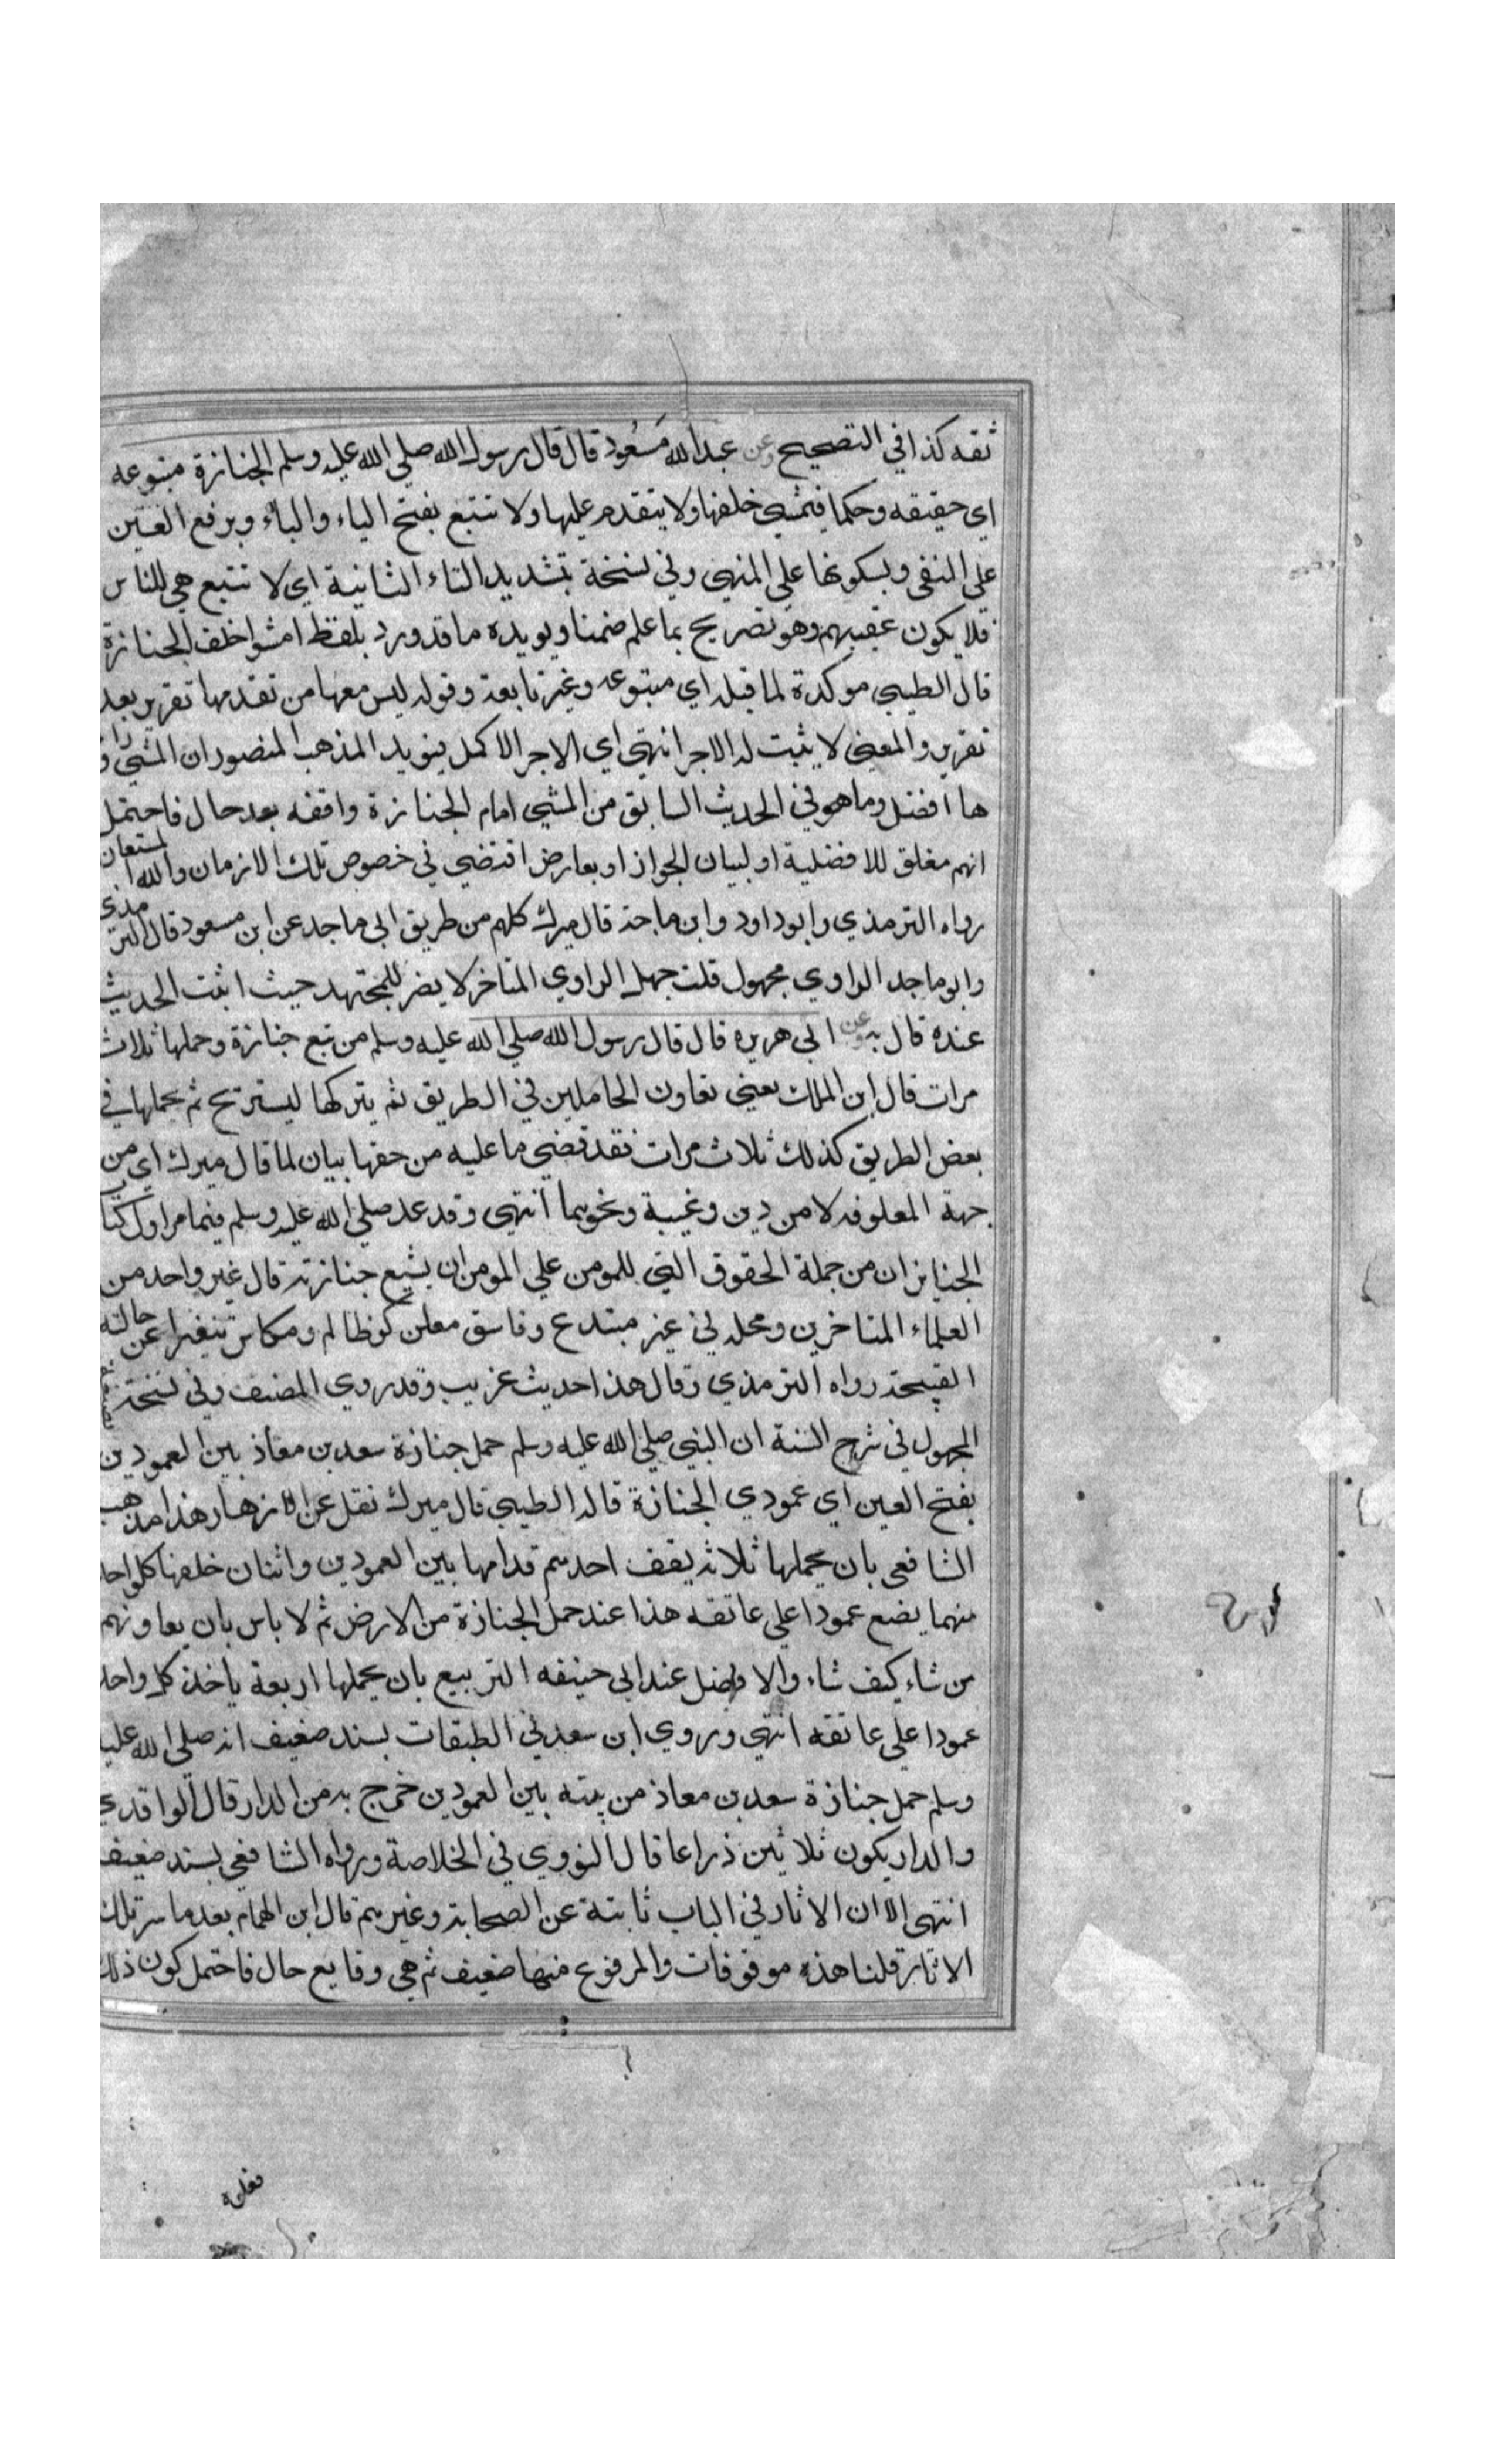 ثقه كذا في التصحيح وعن عبد الله مسعود قال قال رسول الله صلي الله عليه وسلم الجنازة متبوعه
اي حقيقه وحكما فيمشي خلفها ولا يتقدم عليها ولا تتبع بفتح الياء والباء وبرفع العين
علي النفي وبسكونها علي النهي وفي نسخة بتشديد التاء الثانية اي لا تتبع هي للناس
فلا يكون عقبهم وهو تصريح بما علم ضمنا ويويده ما قد ورد بلفظ امشوا خلف الجنازة
قال الطيبي موكدة لما قبله اي متبوعه وغير تابعة وقوله ليس معها من تقدمها تقرير بعد
تقرير والمعني لا يثبت له الاجر انتهي اي الاجر الاكمل فيويد المذهب المنصور ان المشي ورا
ها افضل وما هو في الحديث السابق من المشي امام الجنازة واقفه بعد حال فاحتمل
انهم مغلق للافضلية او لبيان الجواز او بعارض اقتضي في خصوص تلك الازمان والله المستعان
رواه الترمذي وابو داود وابن ماجة قال ميرك كلهم من طريق ابي ماجد عن ابن مسعود قال الترمذي
وابو ماجد الراوي مجهول قلت جهل الراوي المتاخر لا يضر للمجتهد حيث اثبت الحديث
عنده قال به وعن ابي هريره قال قال رسول الله صلي الله عليه وسلم من تبع جنازة وحملها ثلاث
مرات قال ابن الملك يعني تعاون الحاملين في الطريق ثم يتركها ليستريح ثم يحملها في
بعض الطريق كذلك ثلاث مرات فقد قضي ما عليه من حقها بيان لما قال ميرك اي من
جهة المعلوفه لا من دين وغيبة ونحوهما انتهي وقد عد صلي الله عليه وسلم فيما مر اول كتاب
الجنايز ان من جملة الحقوق التي للمومن علي المومن ان يشيع جنازته قال غير واحد من
العلماء المتاخرين ومحله في غير مبتدع وفاسق معلن كوظالم ومكاس تنفيرا عن حالته
القبيحة رواه الترمذي وقال هذا حديث غريب وقد روي المصنف وفي نسخة
المجهول في شرح السنة ان النبي صلي الله عليه وسلم حمل جنازة سعد بن معاذ بين العمودين
بفتح العين اي عمودي الجنازة قاله الطيبي قال ميرك نقل عن الازهار هذا مذهب
الشافعي بان يحملها ثلاثه يقف احدهم قدامها بين العمودين واثنان خلفها كل واحد
منهما يضع عمودا علي عاتقه هذا عند حمل الجنازة من الارض ثم لا باس بان يعاونهم
من شاء كيف شاء والافضل عند ابي حنيفه التربيع بان يحملها اربعة ياخذ كل واحد
عمودا علي عاتقه انتهي وروي ابن سعد في الطبقات بسند ضعيف انه صلي الله عليه
وسلم حمل جنازة سعد بن معاذ من بيته بين العمودين خرج به من الدار قال الواقدي
والدار يكون ثلاثين ذراعا قال النووي في الخلاصة ورواه الشافعي بسند ضعيف
انتهي الا ان الاثار في الباب ثابتة عن الصحابة وغيرهم قال ابن الهمام بعد ما سر تلك
الاثار قلنا هذه موقوفات والمرفوع منها ضعيف ثم هي وقايع حال فاحتمل كون ذلك